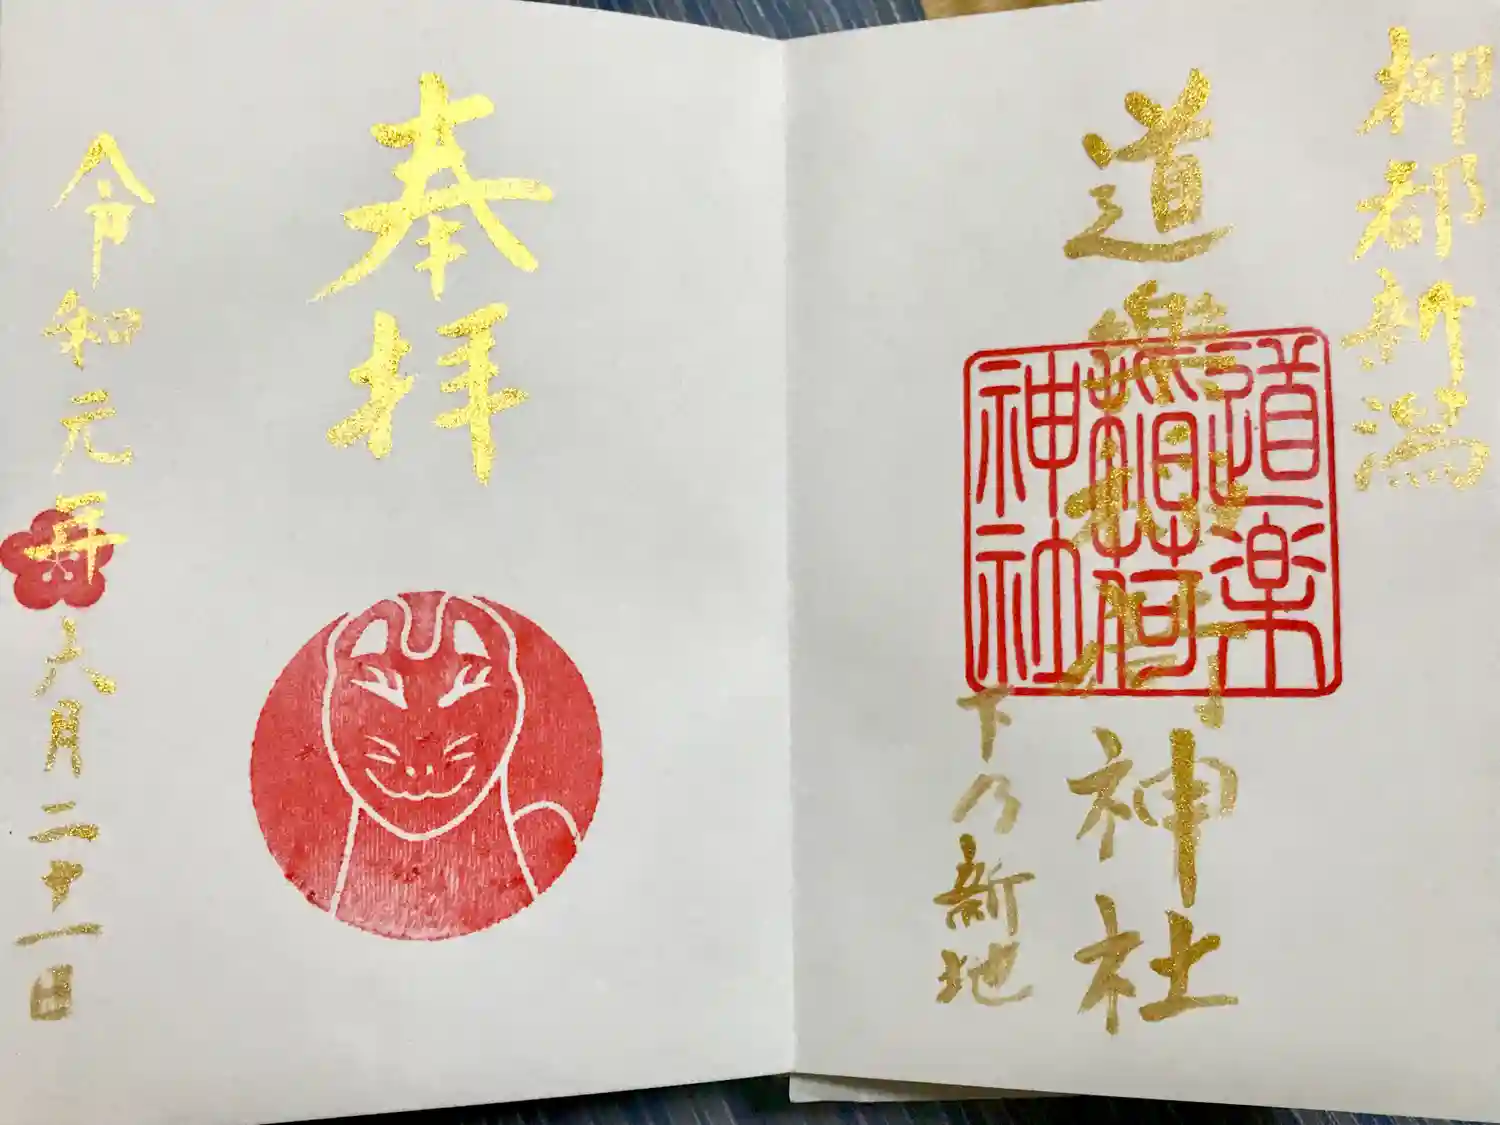 柳都新潟
道楽稲荷神社
道楽
稲荷
神社
下乃新地
奉拝
令和元年六月二十一日